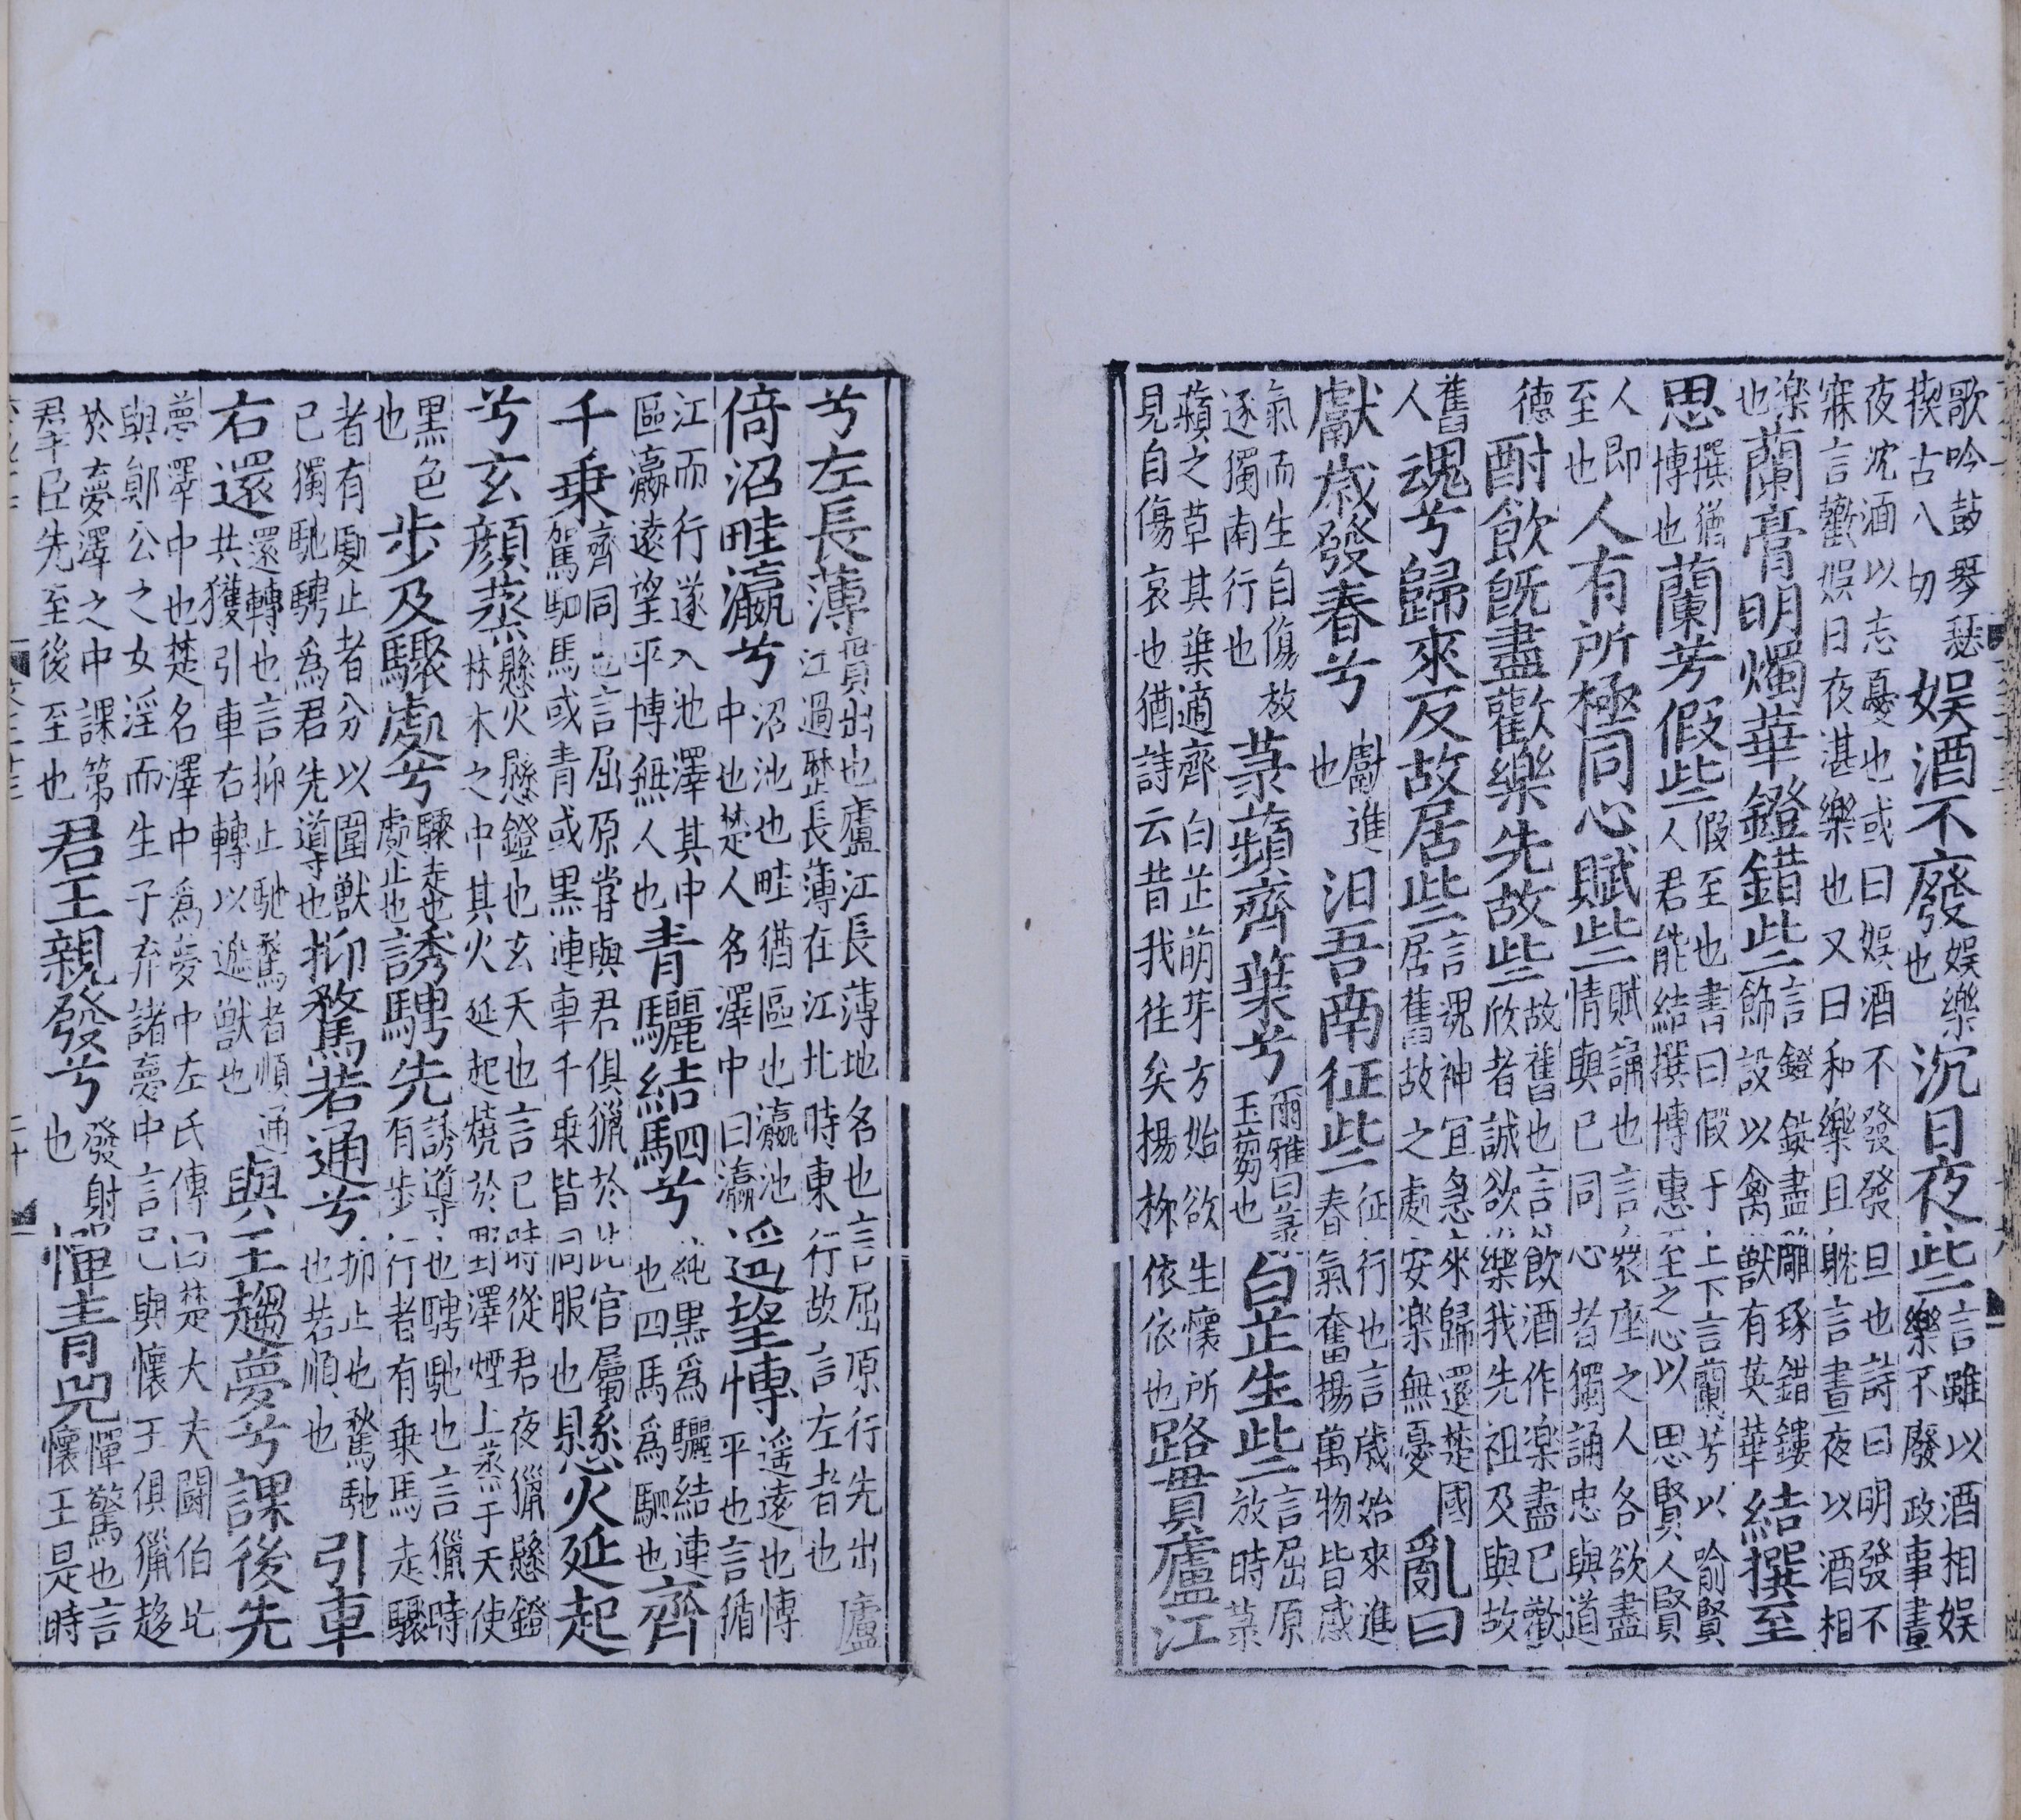 歌吟鼓琴瑟揳古八切娱酒不廢娱樂也沉日夜些言雖以酒相娱樂不廢政事晝
夜沈湎以志憂也或曰娱酒不發發旦也詩曰明發不寐言歡娱日夜湛樂也又曰和樂且耽言晝夜以酒相
樂也蘭膏明燭華鐙錯些言鐙錠盡雕琢錯鏤飾設以禽獸有英華結撰至
思撰猶博也蘭芳假些假至也書曰假于上下言蘭芳以喻賢人君能結撰博惠至之心以思賢人賢
人即至也人有所極同心賦些賦誦也言衆座之人各欲盡情與己同心者獨誦忠與道
德酎飲旣盡歡樂先故些故舊也言飲酒作樂盡己歡欣者誠欲樂我先祖及與故
舊人魂兮歸來反故居些言魂神宜急來歸還楚國居舊故之處安樂無憂亂曰
獻歳發春兮獻進也汩吾南征些征行也言歳始來進春氣奮揚萬物皆感
氣而生自傷放逐獨南行也菉蘋齊葉兮爾雅曰菉王蒭也白芷生些言屈原放時菉
蘋之草其葉適齊白芷萌芽方始欲生懷所見自傷哀也猶詩云昔我往矣楊栁依依也路貫廬江
兮左長薄貫出也廬江長薄地名也言屈原行先出廬江過歴長薄在江北時東行故言左者也
倚沼畦瀛兮沼池也畦猶區也瀛池中也楚人名澤中曰瀛遥望博遥遠也博平也言循
江而行遂入池澤其中區瀛遠望平博無人也青驪結駟兮純黑爲驪結連也四馬爲駟也齊
千乗齊同也言屈原嘗與君俱獵於此官屬駕駟馬或青或黒連車千乗皆同服也懸火延起
兮玄顔蒸懸火懸鐙也玄天也言己時從君夜獵懸鐙林木之中其火延起燒於野澤煙上蒸于天使
黒色也步及驟處兮驟走也處止也誘騁先誘導也騁馳也言獵時有步行者有乗馬走驟
者有處止者分以圍獸已獨馳騁爲君先導也抑騖若通兮抑止也騖馳也若順也引車
右還還轉也言抑止馳騖者順通共獲引車右轉以遮獸也與王趨夢兮課後先
夢澤中也楚名澤中爲夢中左氏傳曰楚大夫鬭伯比與鄖公之女淫而生子弃諸夢中言己與懷王俱獵趍
於夢澤之中課第羣臣先至後至也君王親發兮發射也憚青兕憚驚也言懷王是時